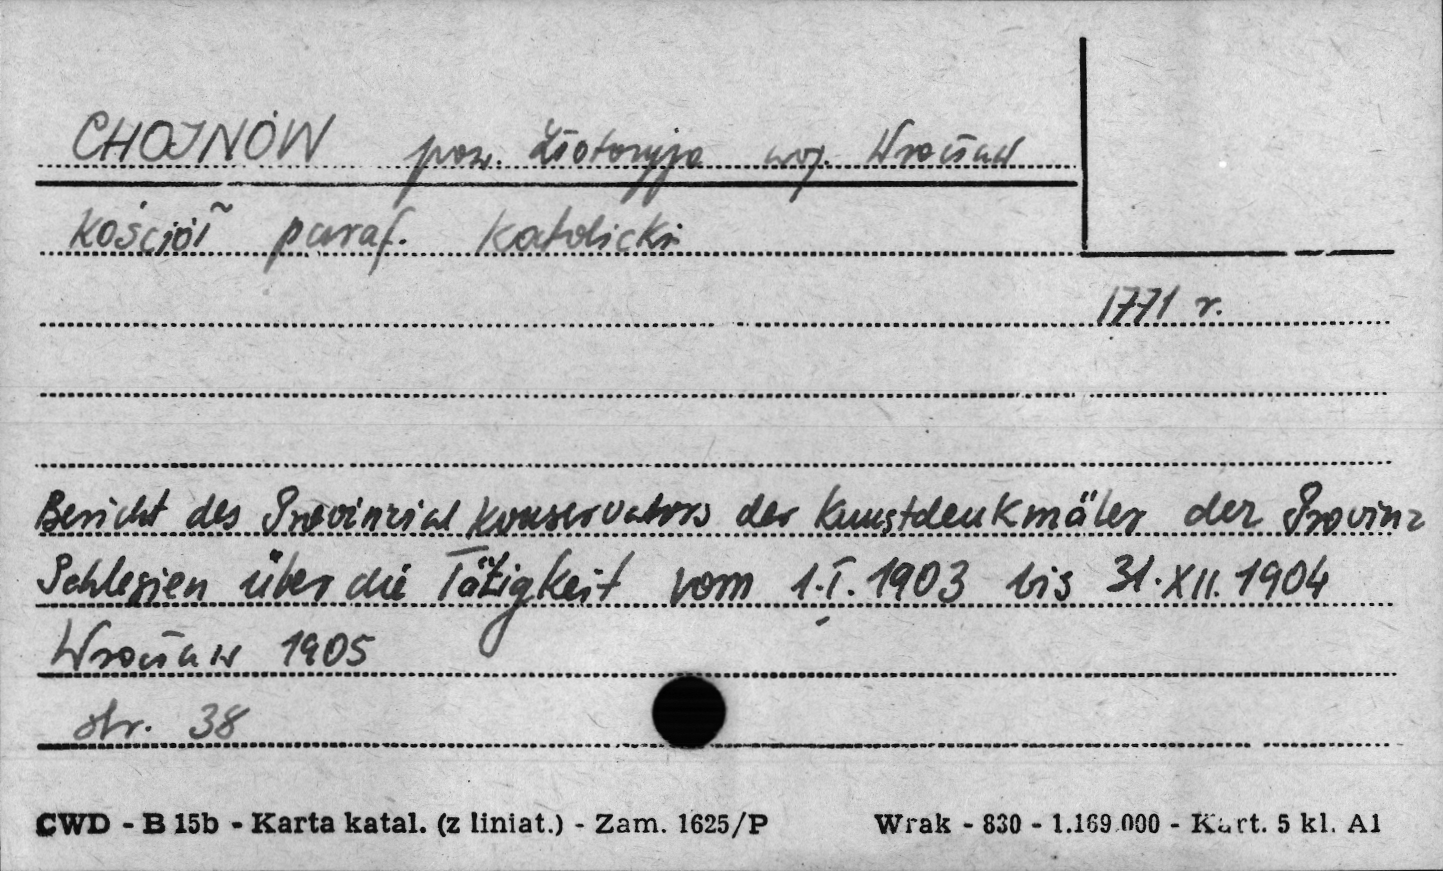 CHOJNÓW pow. Złotoryja woj. Wrocław
Kościół paraf. Katolicki
1771 r.
Bericht des Provinzial Konservators der Kunstdenkmäler der Provinz
Schlesien über die Tätigkeit vom 1.I.1903 bis 31.XII.1904
Wrocław 1905
str. 38
CWD - B 15b - Karta katal. (z liniat.) - Zam. 1625/P Wrak - 830 - 1.169.000 - Kart. 5 kl. A1